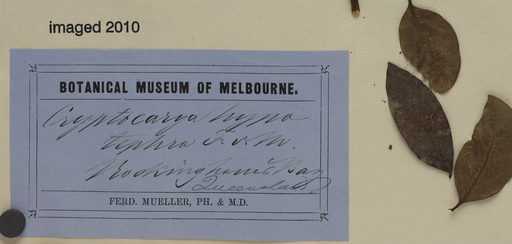 imaged 2010
BOTANICAL MUSEUM OF MELBOURNE.
Cryptocarya hypo
tephra F.v.M.
Rockinghams Bay
Queensland.
FERD. MUELLER, PH. & M.D.